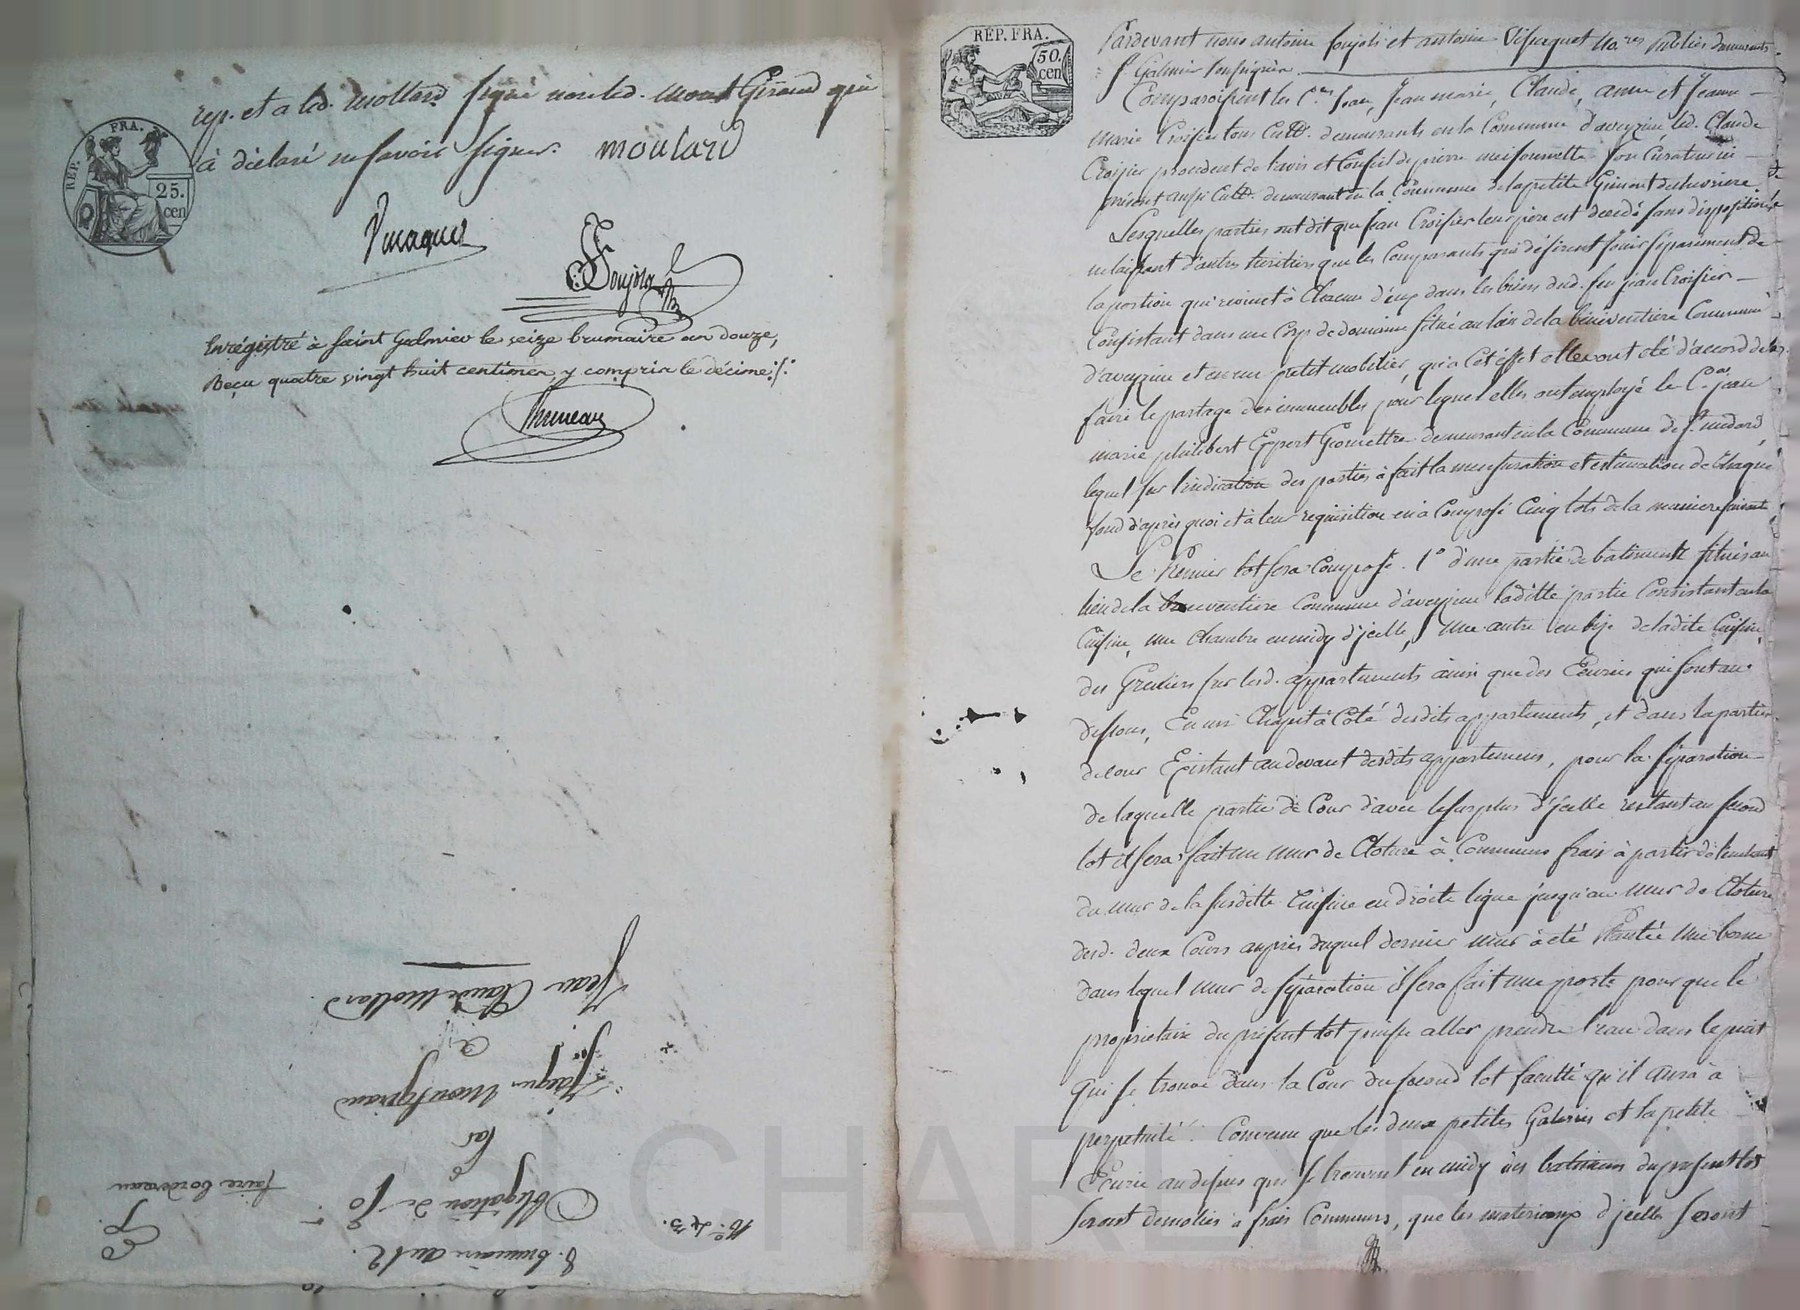 rep. et a led. mollard signé non led. mont Giraud qui
à déclaré ne savoir signer. moulard
REP. FRA.
25.
cen
Vinaquet
Soujola
Enrégistré à saint Galmier le seize brumaire an douze,
Reçu quatre vingt huit centimes y compris le décime
Jean Claude Mollard
à
Jacques Montgiraud
par
Obligation de 80
8. brumaire an 12.
faire bordereau
N°. 43.
REP. FRA.
50.
cen
Pardevant nous antoine soujola et antoine Vinaquet No.res Publics demeurants
St Galmier soussignés
Comparoissent les C.ens Jean, Jean marie, Claude, anne et Jeanne
marie Croisier tous Cult. demeurants en la Commune d'aveyzieu led. Claude
Croisier procedent de l'avis et Conseil de pierre son Curateur ici
présent aussi Cult. demeurant en la Commune de la petite Gimont de chevrieres
Lesquelles parties ont dit que Jean Croisier leur pere est decedé sans disposition
ne laissant d'autres heritiers que les Comparants qui désirent jouir séparément de
la portion qui revient à Chacun d'eux dans les biens dud. feu jean Croisier
Consistant dans un Corps de domaine situé au lieu de la bénéventiere Commune
d'aveyzieu et en un petit mobilier, qu'a cet effet elles ont eté d'accord de
faire le partage des immeubles pour lequel elles ont employé le C.en jean
marie philibert Expert Géomettre demeurant en la Commune de St. médard,
lequel sur l'indication des parties à fait la mensuration et estimation de Chaque
fond d'après quoi et à leur requisition en a Composé Cinq lots de la maniere suivante
Le Premier lot sera Composé. 1° d'une partie de batiments situés au
lieu de la beneventiere Commune d'aveyzieu laditte partie Consistant en la
Cuisine, une Chambre en midy d'jcelle, une autre en bise de ladite Cuisine,
des Greniers sur lesd. appartements ainsi que des Ecuries qui sont au
dessous, En un Chapit à Coté desdits appartements, et dans la partie
de cour Existant au devant desdits appartemens, pour la séparation
de laquelle partie de Cour d'avec le surplus d'jcelle restant au second
lot il sera fait un mur de Cloture à Communs frais à partir de
du mur de la susditte Cuisine en droite ligne jusqu'au mur de Cloture
desd. deux Cours auprès duquel dernier mur à eté Plantée une borne
dans lequel mur de séparation il sera fait une porte pour que le
proprietaire du présent lot puisse aller prendre l'eau dans le puit
qui se trouve dans la Cour du second lot faculté qu'il aura à
perpetuité. Convenu que les deux petites Galeries et la petite
Ecurie au dessus qui se trouvent en midy des batimens du present lot
seront demolies à frais Communs, que les materiaux d'jcelles seront
J CHAREYRON